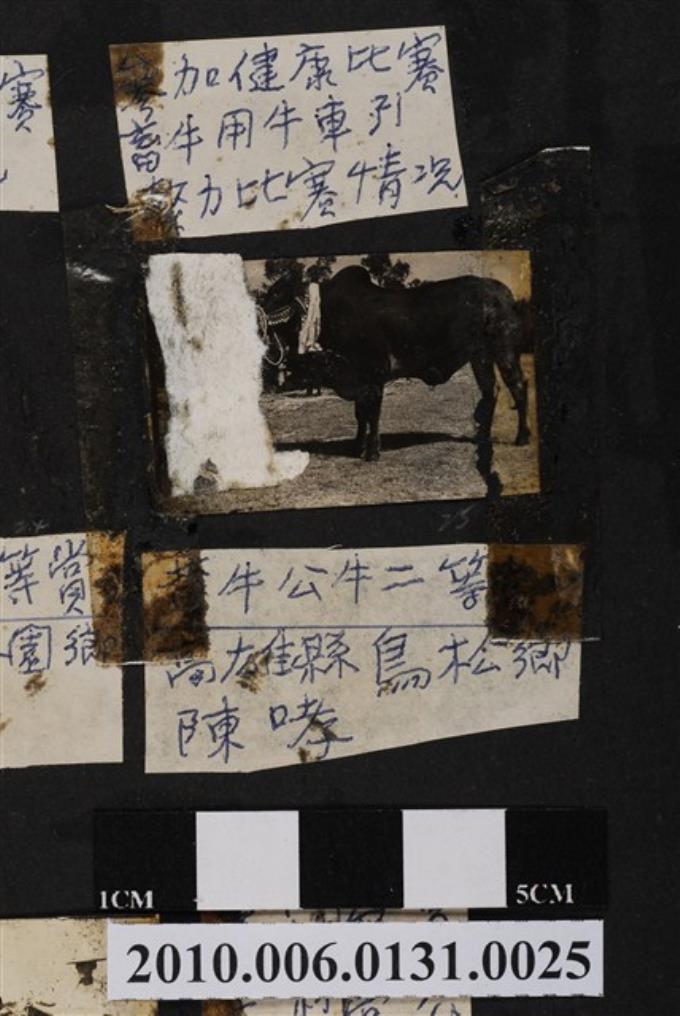 賽
參加健康比賽
畜牛用牛車引
力比賽情況
等賞
園鄉
黃牛公牛二等
高雄縣鳥松鄉
陳哮
1CM 5CM
2010.006.0131.0025